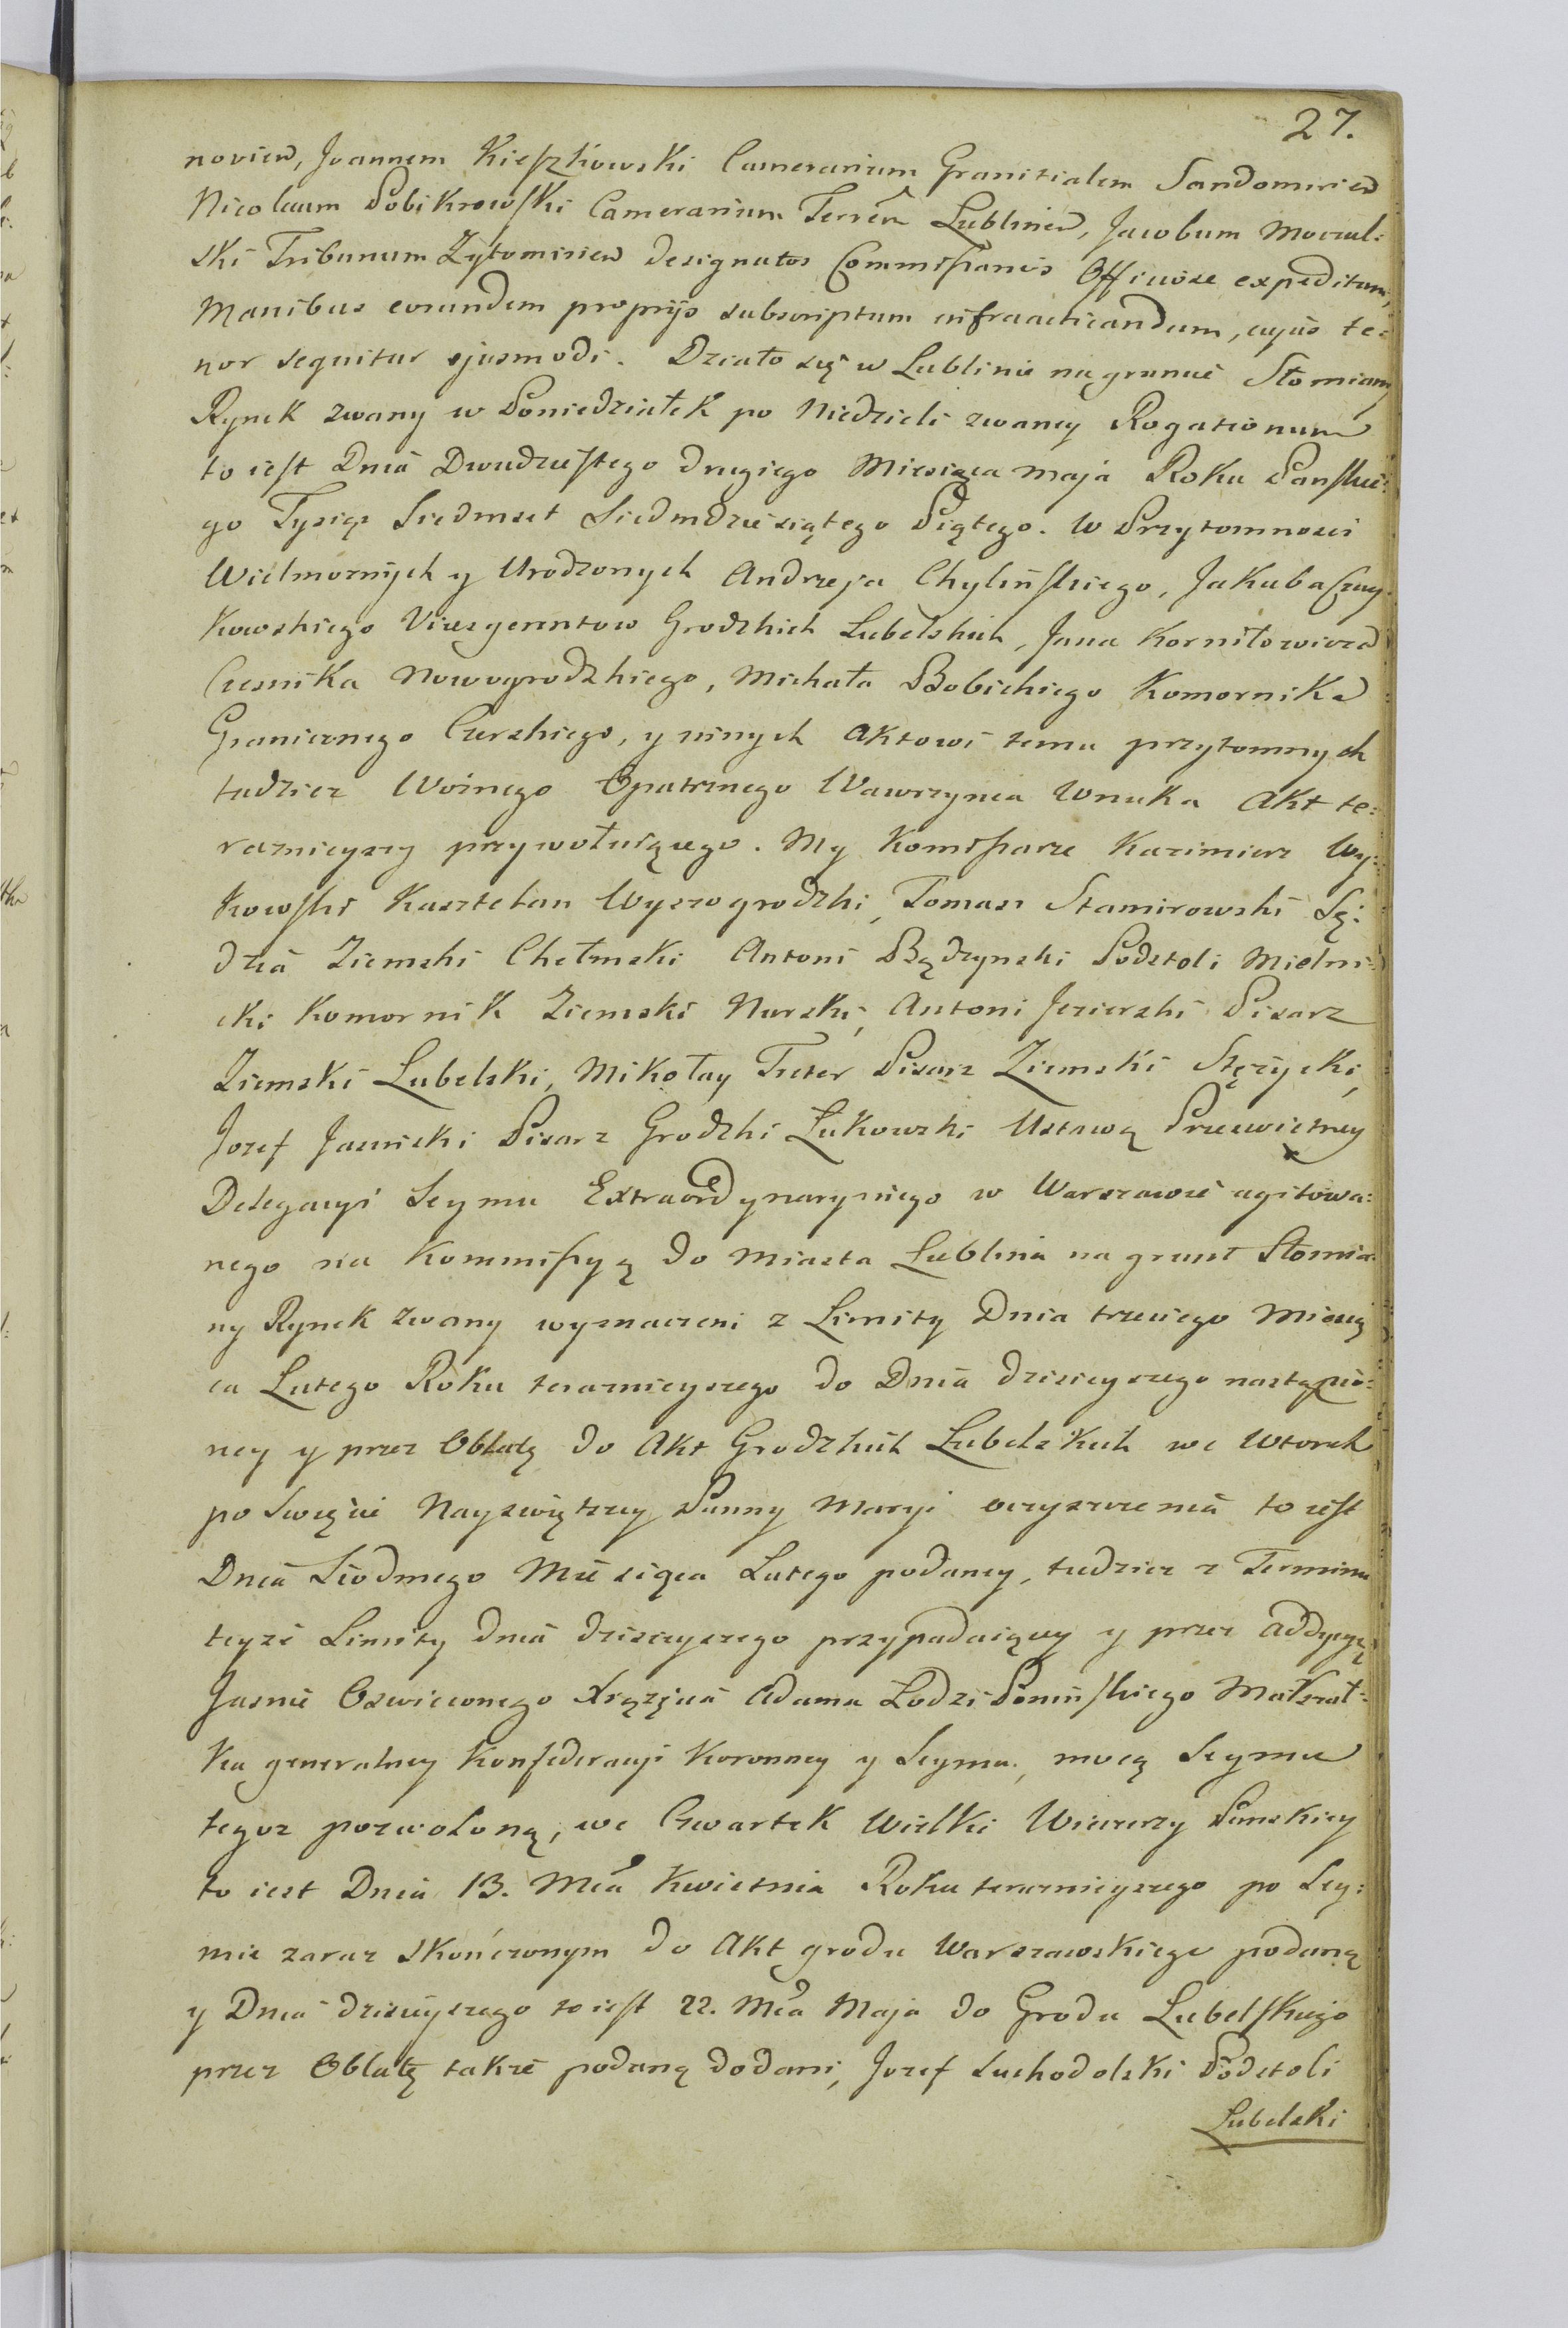 27.
novien, Joannem Kieszkowski Camerarium Granicialem Sandomirien
Nicolaum Dobikrowski Camerarium Terren Lublinen, Jacobum Moczul:
ski Tribunum Zytomirien designatos Commissarios Officiose expeditum,
Manibus eorundem proprijs subscriptum infraacticandum, cujus te:
nor sequitur ejusmodi. Działo się w Lublinie na gruncie Słomiany
Rynek zwany w Poniedziałek po Niedzieli zwaney Rogationum
to iest Dnia Dwudziestego drugiego Miesiąca maja Roku Panskie:
go Tysiąc Siedmset Siedmdziesiątego Piątego. W Przytomnosci
Wielmoznych y Urodzonych Andrzeja Chylinskiego, Jakuba Czay
kowskiego Vicesgerentow Grodzkich Lubelskich, Jana Korniłowicza
Czesnika Nowogrodzkiego, Michała Bobickiego Komornika
Granicznego Czerskiego, y innych aktowi temu przytomnych
tudziez Woznego Opatrznego Wawrzynca Wnuka Akt te:
raznieyszy przywołuiącego. My Kommissarze Kazimierz Wy:
kowski Kasztelan Wyszogrodzki, Tomasz Stamirowski Sę:
dzia Ziemski Chełmski Antoni Bądzynski Podstoli Mielni:
cki Komornik Ziemski Nurski, Antoni Jezierski Pisarz
Ziemski Lubelski, Mikołay Treter Pisarz Ziemski Stęzycki,
Jozef Jasnicki Pisarz Grodzki Łukowski Ustawą Przeswietney
Delegacyi Seymu Extraordynaryinego w Warszawie agitowa:
nego na Kommissyą do Miasta Lublina na grunt Słomia:
ny Rynek zwany wyznaczeni z Limity Dnia trzeciego Miesią
ca Lutego Roku teraznieyszego do Dnia dzisieyszego nastąpio:
ney y przez Oblatę do Akt Grodzkich Lubelskich we Wtorek
po Swięcie Nayswiętszey Panny Maryi oczyszczenia to iest
Dnia Siodmego Miesiąca Lutego podaney, tudziez z Terminu
teyze Limity dnia dzisieyszego przypadaiącey y przez addycyą
Jasnie Oswieconego Xiązęcia Adama Łodzi Poninskiego Marszał:
ka generalney Konfederacyi Koronney y Seymu, mocą Seymu
tegoz pozwoloną, we Czwartek Wielki Wieczerzy Panskiey
to iest Dnia 13. Mca Kwietnia Roku teraznieyszego po Sey:
mie zaraz skończonym do Akt grodu Warszawskiego podaną
y Dnia dzisieyszego to iest 22. Mca Maja do Grodu Lubelskiego
przez Oblatę takze podaną dodani, Jozef Suchodolski Podstoli
Lubelski